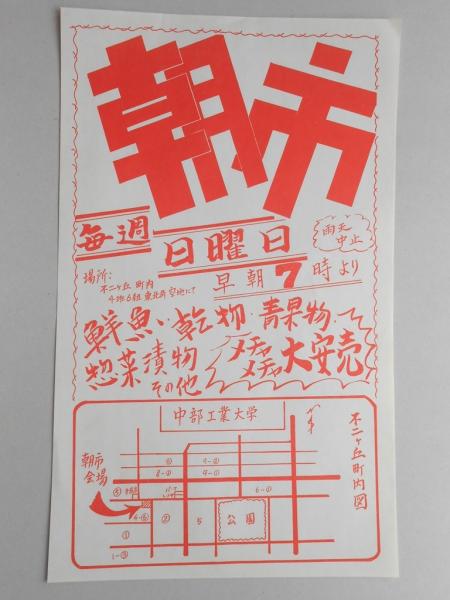 朝市
毎週
日曜日
雨天
中止
早朝7時より
場所:
不二ヶ丘町内
4班6組東北角空地にて
鮮魚・乾物・青果物・
惣菜漬物
その他
メチャ
メチャ
大安売
中部工業大学
不二ヶ丘町内図
朝市
会場
6-②
4-⑥
②
5
公園
①
1-③